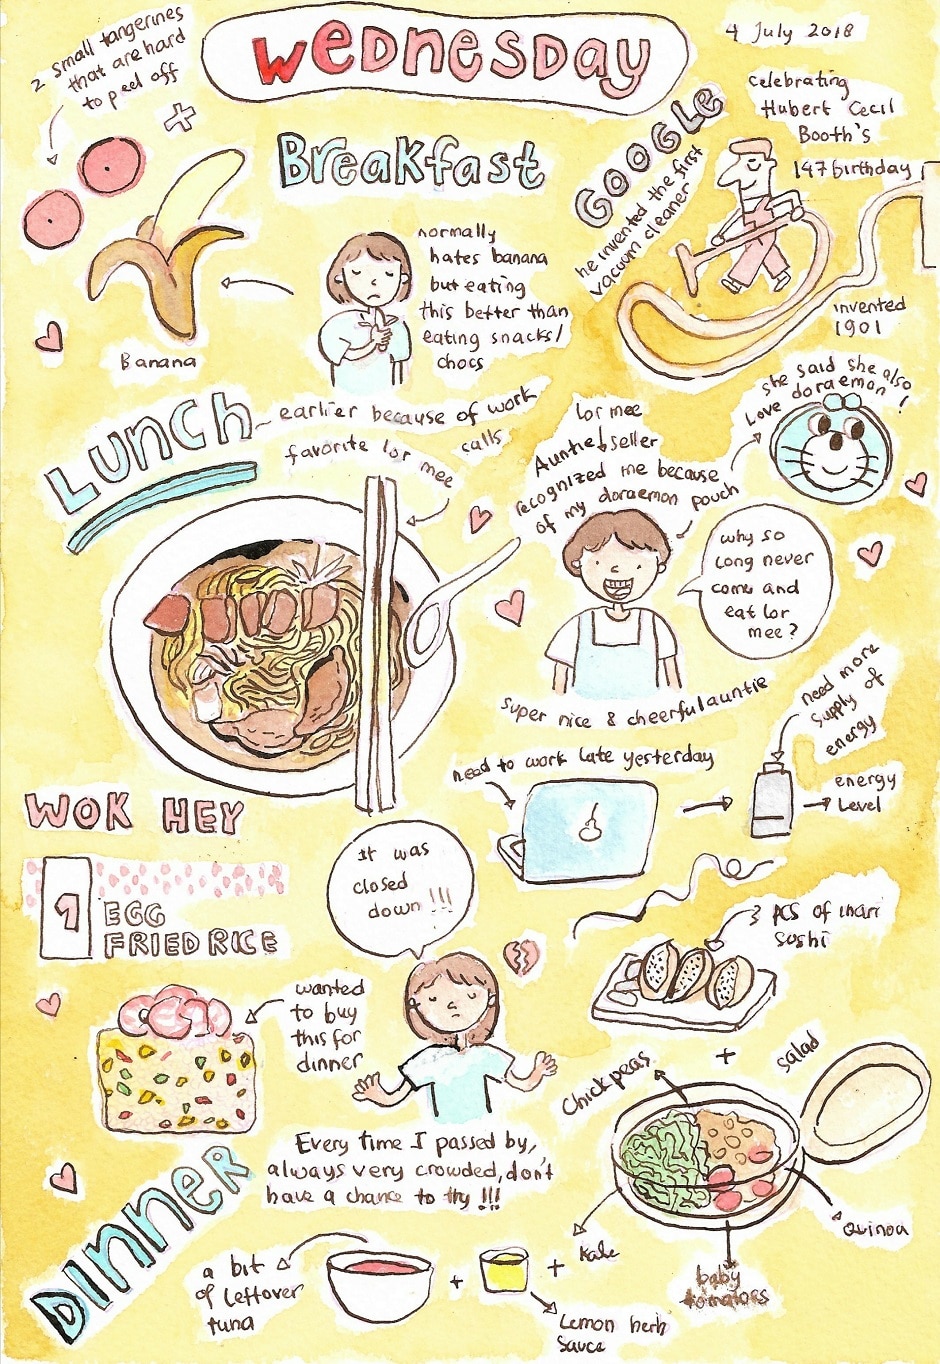 Wednesday
4 July 2018
2 small tangerines
that are hard
to peel off
Breakfast
GOOGLE
he invented the first
vacuum cleaner
celebrating
Hubert Cecil
Booth's
147 birthday
invented
1901
Banana
normally
hates banana
but eating
this better than
eating snacks/
chocs
LUNCH
earlier because of work
calls
favorite lor mee
lor mee
Auntie seller
recognized me because
of my doraemon pouch
she said she also
love doraemon!
why so
long never
come and
eat lor
mee?
super nice & cheerful auntie
need to work late yesterday
need more
supply of
energy
energy
level
WOK HEY
1
EGG
FRIED RICE
It was
closed
down !!!
wanted
to buy
this for
dinner
Every time I passed by,
always very crowded, don't
have a chance to try !!!
DINNER
3 pcs of inari
sushi
+
salad
chickpeas
Quinoa
kale
baby
tomatoes
a bit
of leftover
tuna
+
+
Lemon herb
sauce